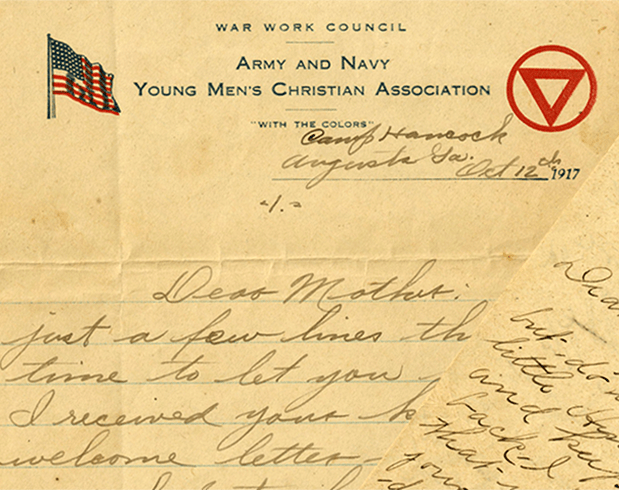 WAR WORK COUNCIL
ARMY AND NAVY
YOUNG MEN'S CHRISTIAN ASSOCIATION
"WITH THE COLORS"
Camp Hancock
Augusta Ga. Oct 12th 1917
-1.-
Dear Mother:
just a few lines th
time to let you
I received your
welcome letter-
but do
little
and
back I
that